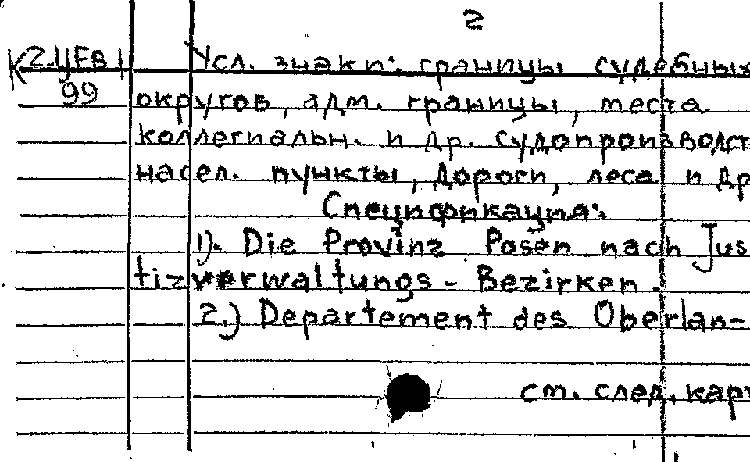 2
K 2.ЦFB 1 Усл. знаки: границы судебных
99 округов, адм. границы, места
коллегиальн. и др. судопроизводст
насел. пункты, дороги, леса и др
Спецификация:
1). Die Provinz Posen nach Jus
tizverwaltungs - Bezirken.
2.) Departement des Oberlan-
см. след. карт